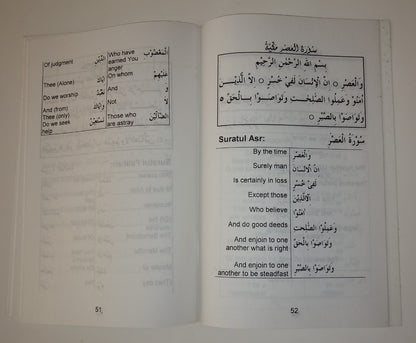 Of judgment الدِّيْنِ
Thee (Alone) اِيَّاكَ
Do we worship نَعْبُدُ
And (from) وَاِيَّاكَ
Thee (only)
Do we seek نَسْتَعِيْنُ
help
Who have الْمَغْضُوْبِ
earned You
anger
On whom عَلَيْهِمْ
And وَ
Not لَا
Those who الضَّآلِّيْنَ
are astray
51
سُوْرَةُ الْعَصْرِ مَكِّيَّةٌ
بِسْمِ اللهِ الرَّحْمٰنِ الرَّحِيْمِ
وَالْعَصْرِ ○ اِنَّ الْاِنْسَانَ لَفِيْ خُسْرٍ ○ اِلَّا الَّذِيْنَ
اٰمَنُوْا وَعَمِلُوا الصّٰلِحٰتِ وَتَوَاصَوْا بِالْحَقِّ ○
وَتَوَاصَوْا بِالصَّبْرِ ○
Suratul Asr: سُوْرَةُ الْعَصْرِ
By the time وَالْعَصْرِ
Surely man اِنَّ الْاِنْسَانَ
Is certainly in loss لَفِيْ خُسْرٍ
Except those اِلَّا الَّذِيْنَ
Who believe اٰمَنُوْا
And do good deeds وَعَمِلُوا الصّٰلِحٰتِ
And enjoin to one وَتَوَاصَوْا بِالْحَقِّ
another what is right
And enjoin to one وَتَوَاصَوْا بِالصَّبْرِ
another to be steadfast
52